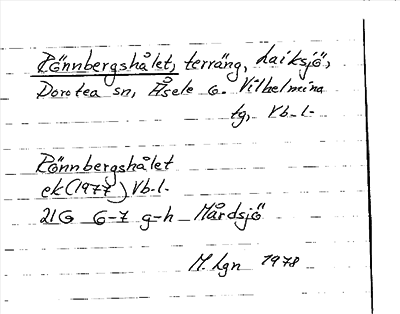 Rönnbergshålet, terräng, Laiksjö,
Dorotea sn, Åsele o. Vilhelmina
tg, Vb. l.
Rönnbergshålet
ek (1977) Vb. l.
21G 6-7 g-h Mårdsjö
M. Lgn 1978